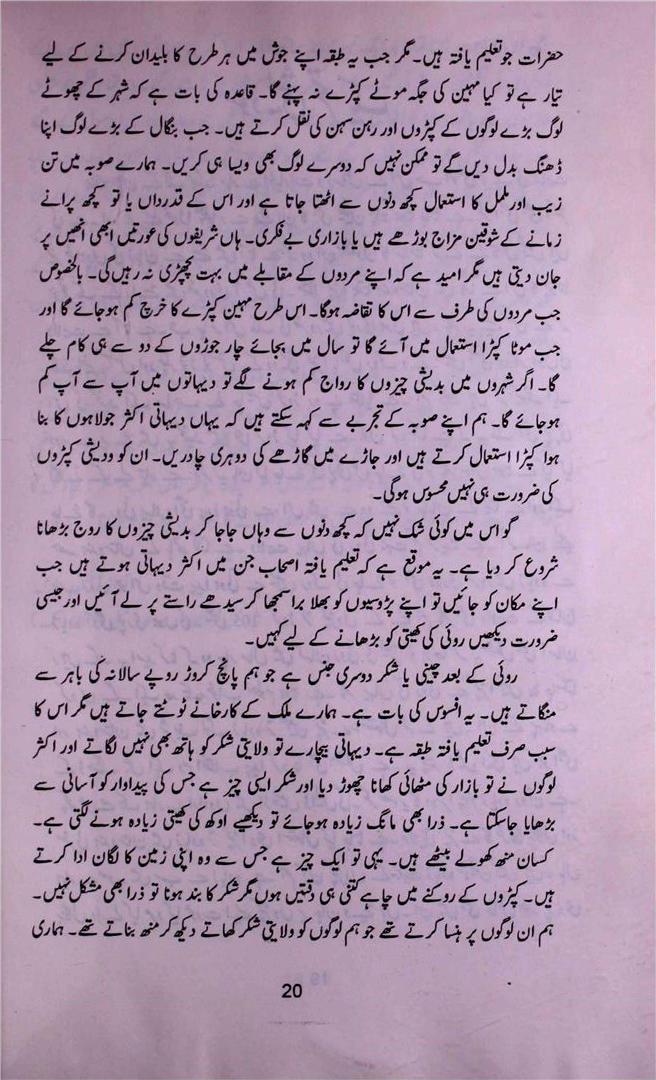 حضرات جو تعلیم یافتہ ہیں۔ مگر جب یہ طبقہ اپنے جوش میں ہر طرح کا بلیدان کرنے کے لیے
تیار ہے تو کیا مہین کی جگہ موٹے کپڑے نہ پہنے گا۔ قاعدہ کی بات ہے کہ شہر کے چھوٹے
لوگ بڑے لوگوں کے کپڑوں اور رہن سہن کی نقل کرتے ہیں۔ جب بنگال کے بڑے لوگ اپنا
ڈھنگ بدل دیں گے تو ممکن نہیں کہ دوسرے لوگ بھی ویسا ہی کریں۔ ہمارے صوبہ میں تن
زیب اور ململ کا استعمال کچھ دنوں سے اٹھتا جاتا ہے اور اس کے قدرداں یا تو کچھ پرانے
زمانے کے شوقین مزاج بوڑھے ہیں یا بازاری بے فکری۔ ہاں شریفوں کی عورتیں ابھی انھیں پر
جان دیتی ہیں مگر امید ہے کہ اپنے مردوں کے مقابلے میں بہت پچھڑی نہ رہیں گی۔ بالخصوص
جب مردوں کی طرف سے اس کا تقاضہ ہوگا۔ اس طرح مہین کپڑے کا خرچ کم ہوجائے گا اور
جب موٹا کپڑا استعمال میں آئے گا تو سال میں بجائے چار جوڑوں کے دو سے ہی کام چلے
گا۔ اگر شہروں میں بدیشی چیزوں کا رواج کم ہونے لگے تو دیہاتوں میں آپ سے آپ کم
ہوجائے گا۔ ہم اپنے صوبہ کے تجربے سے کہہ سکتے ہیں کہ یہاں دیہاتی اکثر جولاہوں کا بنا
ہوا کپڑا استعمال کرتے ہیں اور جاڑے میں گاڑھے کی دوہری چادریں۔ ان کو ودیشی کپڑوں
کی ضرورت ہی نہیں محسوس ہوگی۔
گو اس میں کوئی شک نہیں کہ کچھ دنوں سے وہاں جاجا کر بدیشی چیزوں کا روج بڑھانا
شروع کر دیا ہے۔ یہ موقع ہے کہ تعلیم یافتہ اصحاب جن میں اکثر دیہاتی ہوتے ہیں جب
اپنے مکان کو جائیں تو اپنے پڑوسیوں کو بھلا برا سمجھا کر سیدھے راستے پر لے آئیں اور جیسی
ضرورت دیکھیں روئی کی کھیتی کو بڑھانے کے لیے کہیں۔
روئی کے بعد چینی یا شکر دوسری جنس ہے جو ہم پانچ کروڑ روپے سالانہ کی باہر سے
منگاتے ہیں۔ یہ افسوس کی بات ہے۔ ہمارے ملک کے کارخانے ٹوٹتے جاتے ہیں مگر اس کا
سبب صرف تعلیم یافتہ طبقہ ہے۔ دیہاتی بیچارے تو ولایتی شکر کو ہاتھ بھی نہیں لگاتے اور اکثر
لوگوں نے تو بازار کی مٹھائی کھانا چھوڑ دیا اور شکر ایسی چیز ہے جس کی پیداوار کو آسانی سے
بڑھایا جاسکتا ہے۔ ذرا بھی مانگ زیادہ ہوجائے تو دیکھیے اوکھ کی کھیتی زیادہ ہونے لگتی ہے۔
کسان منھ کھولے بیٹھے ہیں۔ یہی تو ایک چیز ہے جس سے وہ اپنی زمین کا لگان ادا کرتے
ہیں۔ کپڑوں کے روکنے میں چاہے کتنی ہی دقتیں ہوں مگر شکر کا بند ہونا تو ذرا بھی مشکل نہیں۔
ہم ان لوگوں پر ہنسا کرتے تھے جو ہم لوگوں کو ولایتی شکر کھاتے دیکھ کر منھ بناتے تھے۔ ہماری
20